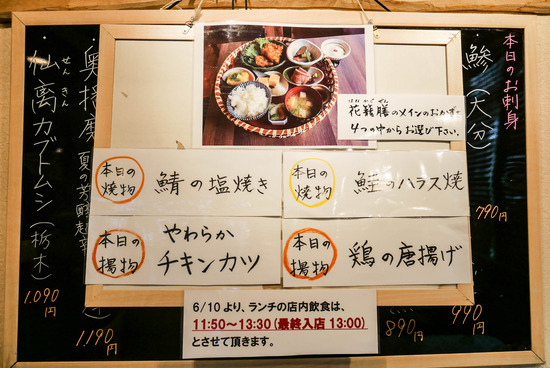 本日のお刺身
鯵(大分)
790円
990円
890円
はなかごぜん
花籠膳のメインのおかず。
4つの中からお選び下さい。
本日の焼物
鯖の塩焼き
本日の焼物
鮭のハラス焼
本日の揚物
やわらか
チキンカツ
本日の揚物
鶏の唐揚げ
6/10より、ランチの店内飲食は、
11:50~13:30(最終入店 13:00)
とさせて頂きます。
奥播磨
夏の芳醇超辛
1,190円
せんきん
仙禽カブトムシ(栃木)
1,090円